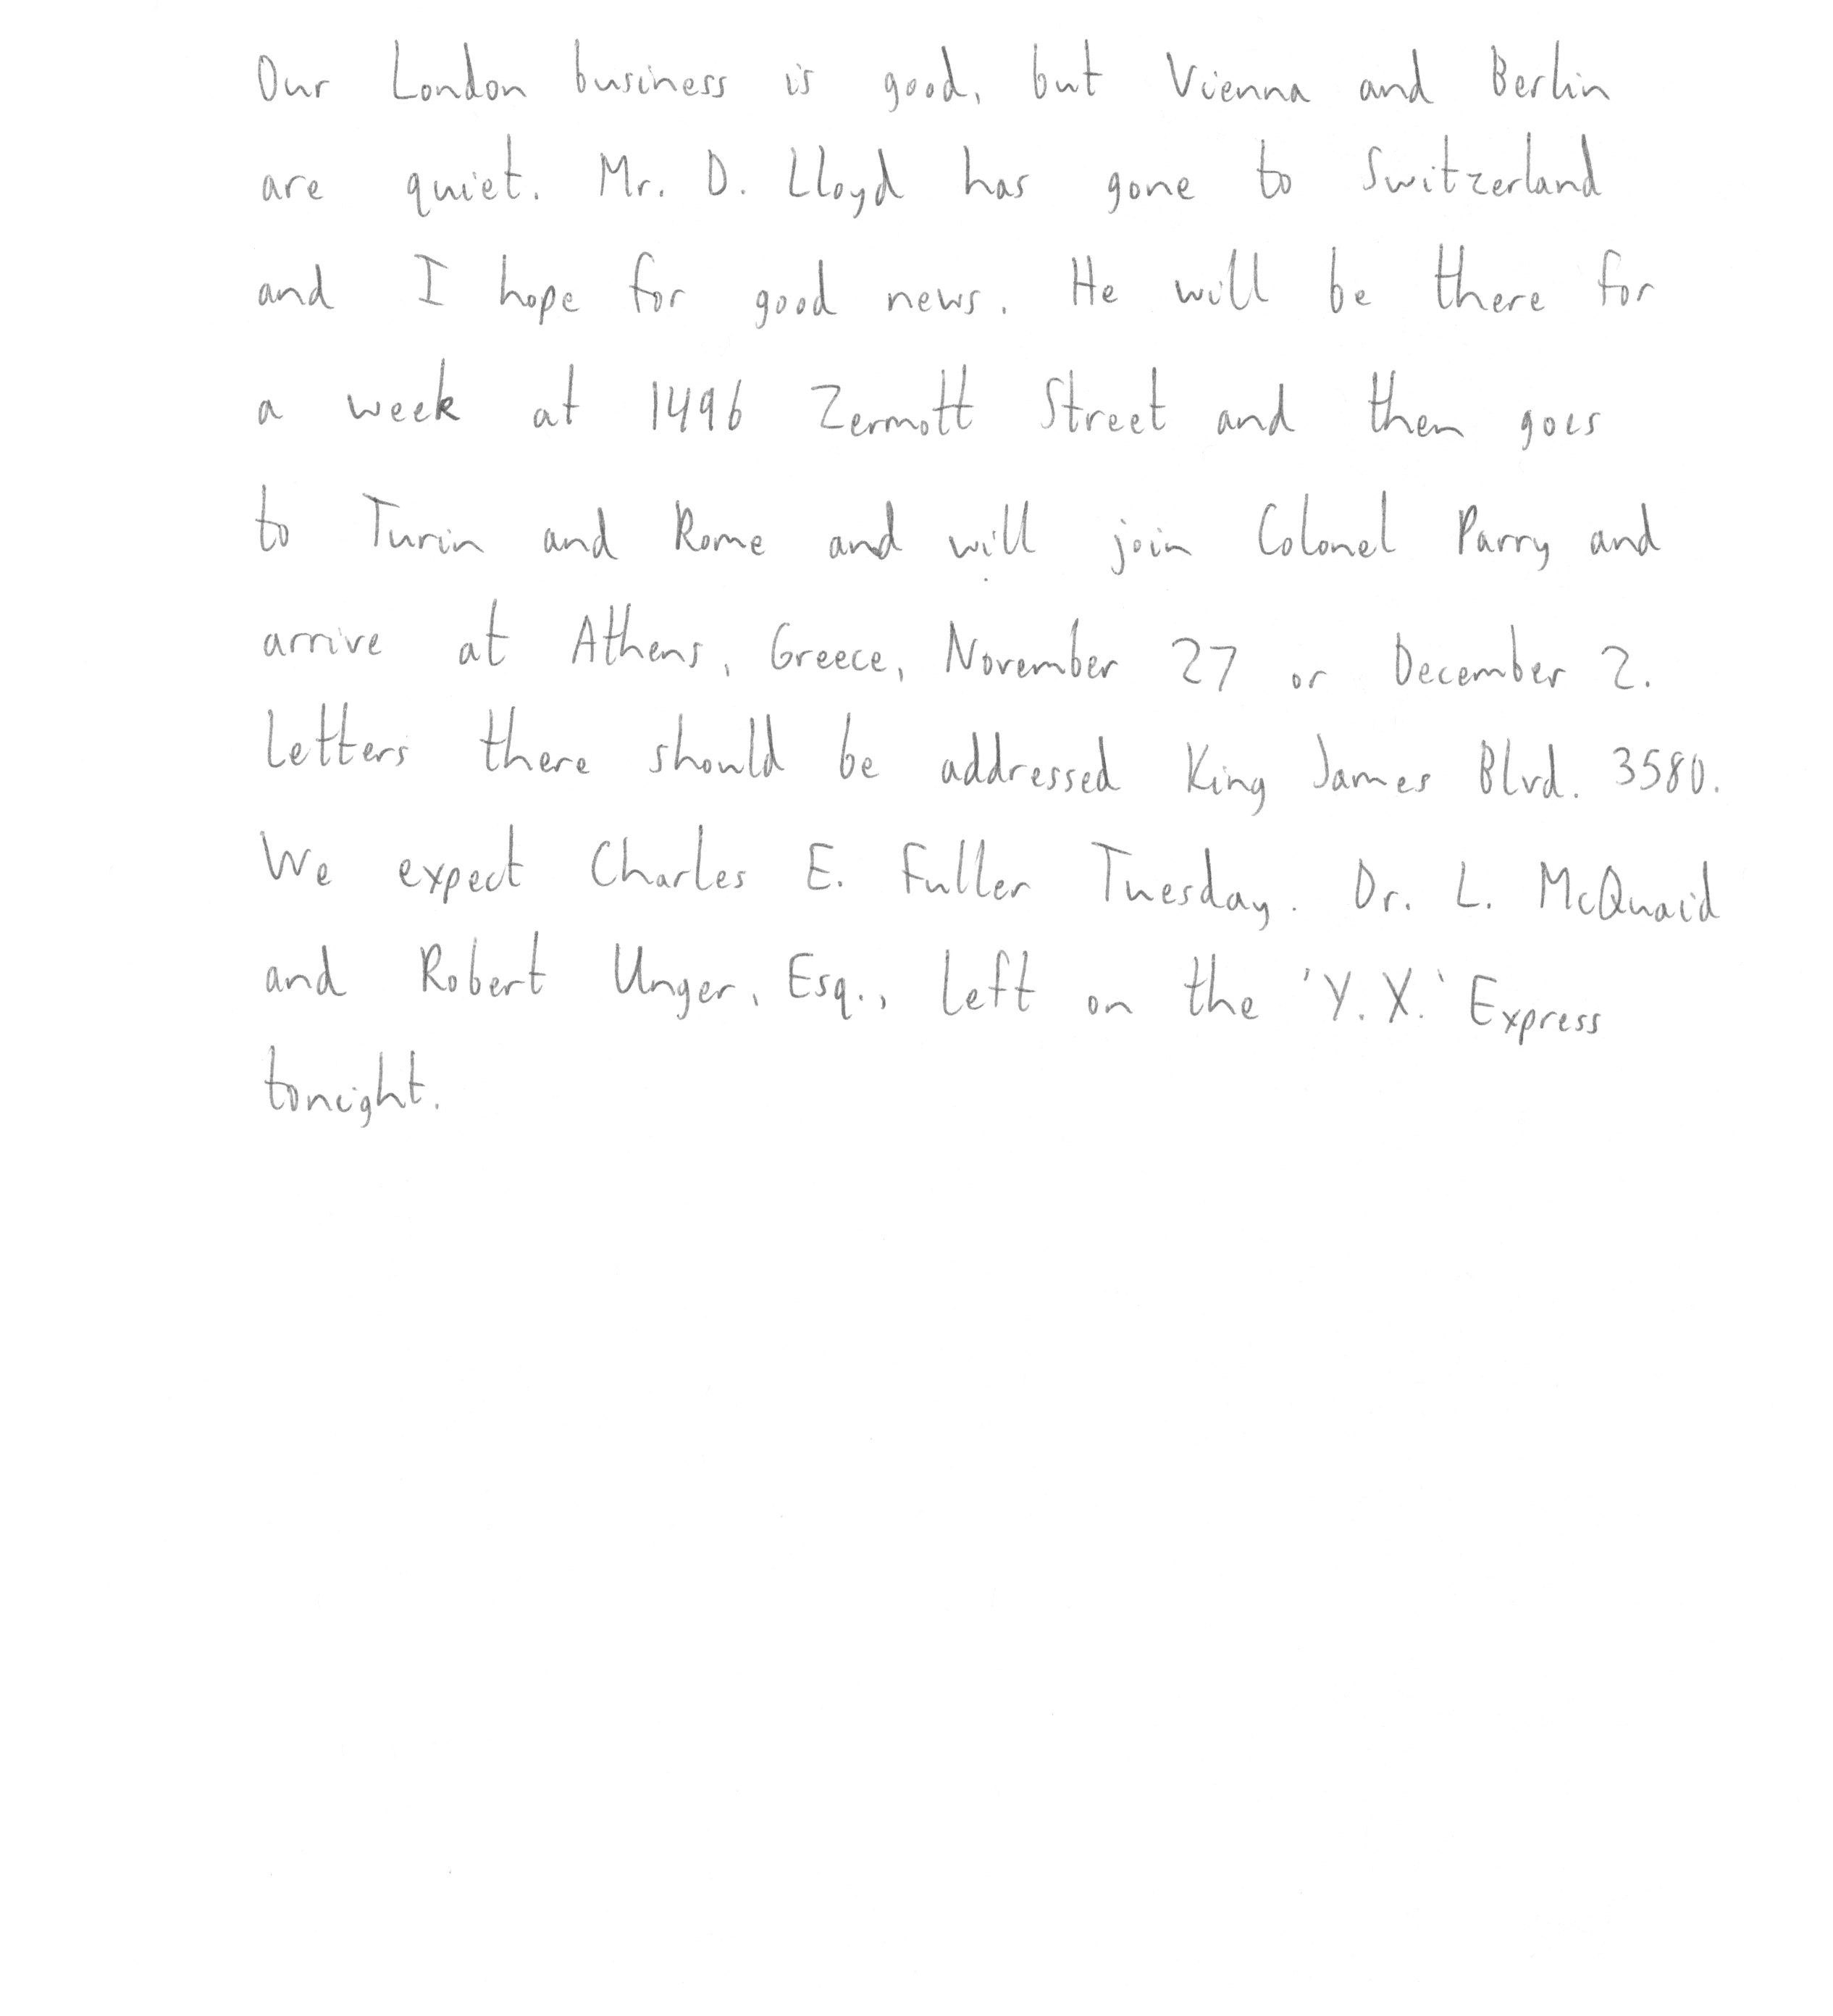 Our London business is good, but Vienna and Berlin
are quiet. Mr. D. Lloyd has gone to Switzerland
and I hope for good news. He will be there for
a week at 1496 Zermott Street and then goes
to Turin and Rome and will join Colonel Parry and
arrive at Athens, Greece, November 27 or December 2.
Letters there should be addressed King James Blvd. 3580.
We expect Charles E. Fuller Tuesday. Dr. L. McQuaid
and Robert Unger, Esq., left on the 'Y.X.' Express
tonight.